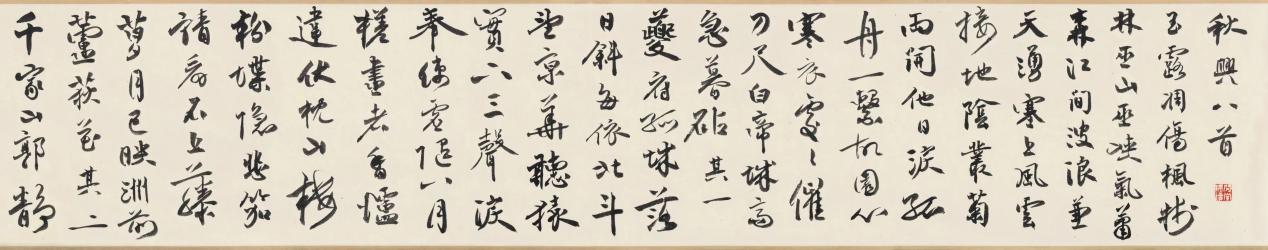 秋興八首
玉露凋傷楓樹
林巫山巫峽氣蕭
森江間波浪兼
天湧塞上風雲
接地陰叢菊
兩開他日淚孤
舟一繫故園心
寒衣處々催
刀尺白帝城高
急暮砧 其一
夔府孤城落
日斜每依北斗
望京華聽猿
實下三聲淚
奉使虛隨八月
槎畫省香爐
違伏枕山樓
粉堞隱悲笳
請看石上藤
蘿月已映洲前
蘆荻花 其二
千家山郭靜